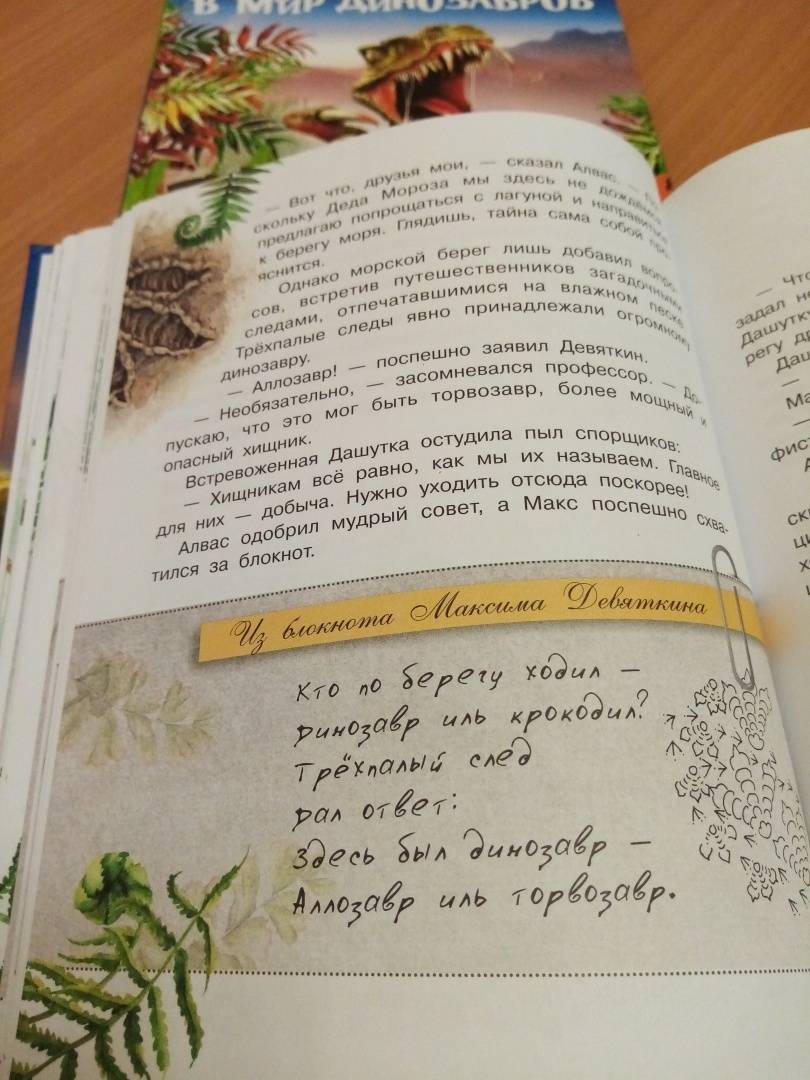 В МИР ДИНОЗАВРОВ
— Вот что, друзья мои, — сказал Алвас. —
скольку Деда Мороза мы здесь не дождёмся
предлагаю попрощаться с лагуной и направиться
к берегу моря. Глядишь, тайна сама собой про-
яснится.
Однако морской берег лишь добавил вопро-
сов, встретив путешественников загадочными
следами, отпечатавшимися на влажном песке
Трёхпалые следы явно принадлежали огромному
динозавру.
— Аллозавр! — поспешно заявил Девяткин.
— Необязательно, — засомневался профессор. — До-
пускаю, что это мог быть торвозавр, более мощный и
опасный хищник.
Встревоженная Дашутка остудила пыл спорщиков:
— Хищникам всё равно, как мы их называем. Главное
для них — добыча. Нужно уходить отсюда поскорее!
Алвас одобрил мудрый совет, а Макс поспешно схва-
тился за блокнот.
Из блокнота Максима Девяткина
Кто по берегу ходил —
динозавр иль крокодил?
Трёхпалый след
дал ответ:
Здесь был динозавр —
Аллозавр иль торвозавр.
— Что
задал не
Дашутку
регу д
Даш
—
Ма
—
фист